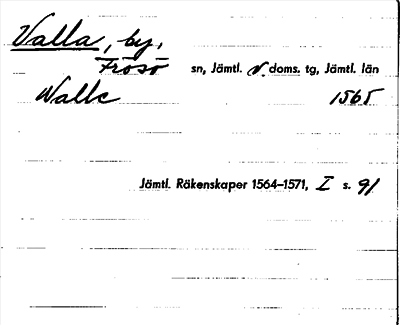 Valla, by,
Frösö sn, Jämtl. v. doms. tg, Jämtl. län
Walle 1565
Jämtl. Räkenskaper 1564–1571, I s. 91